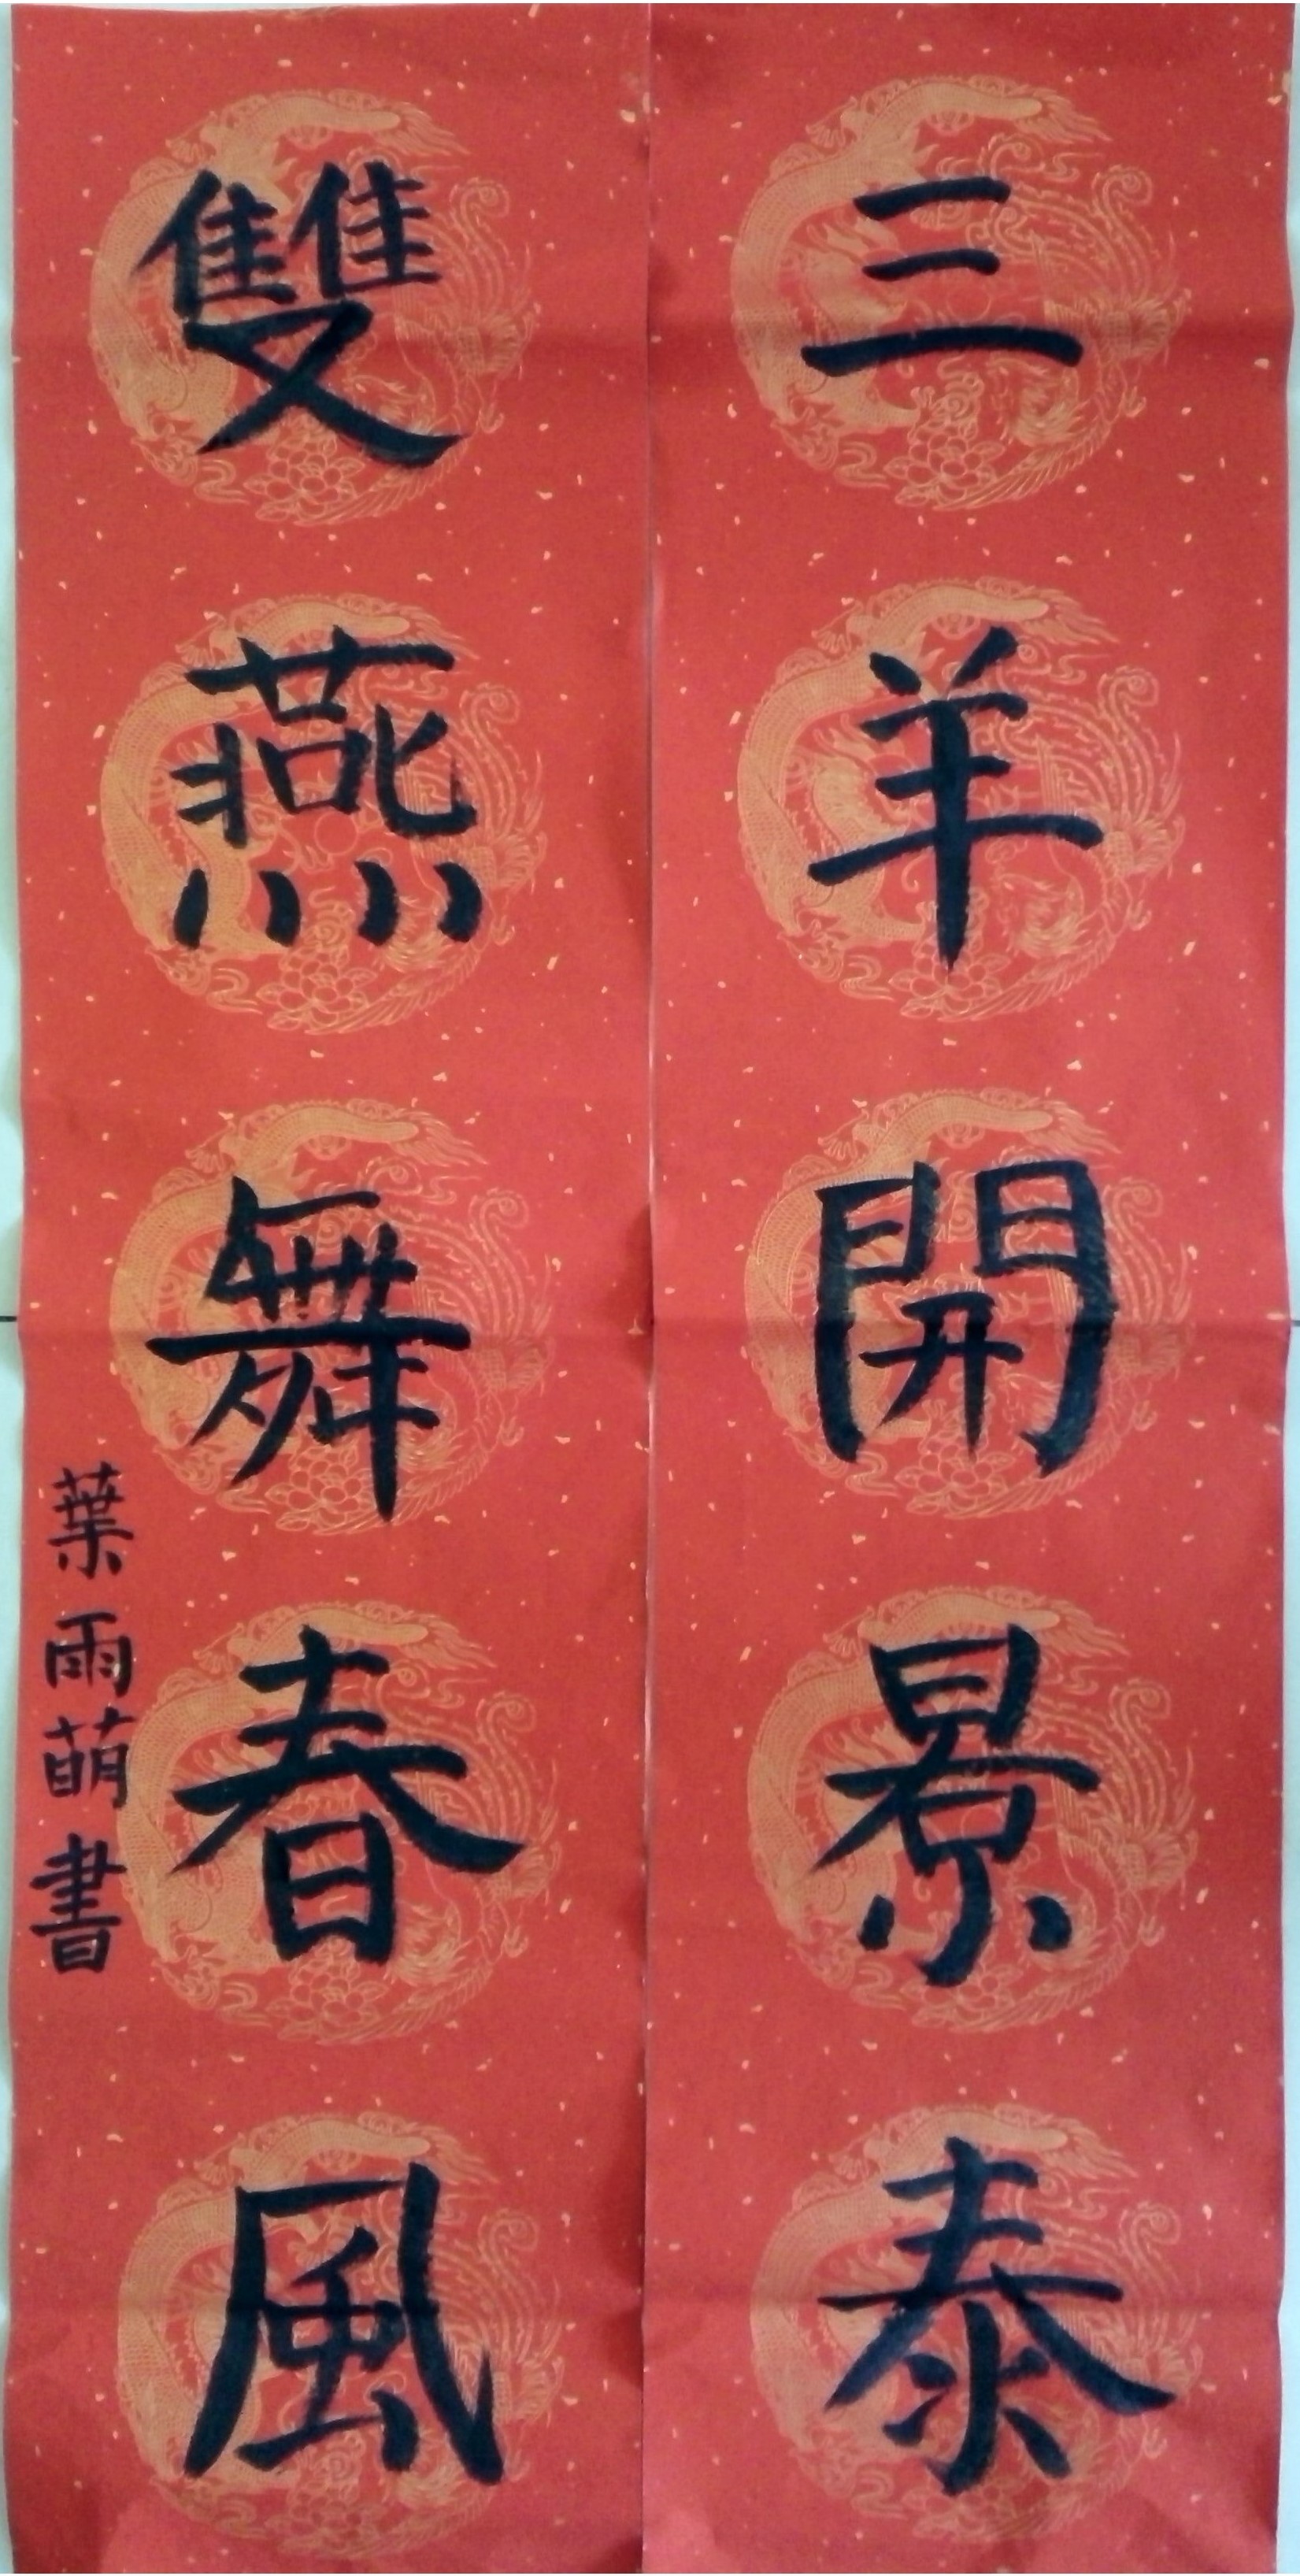 三羊開景泰
雙燕舞春風
葉雨萌書